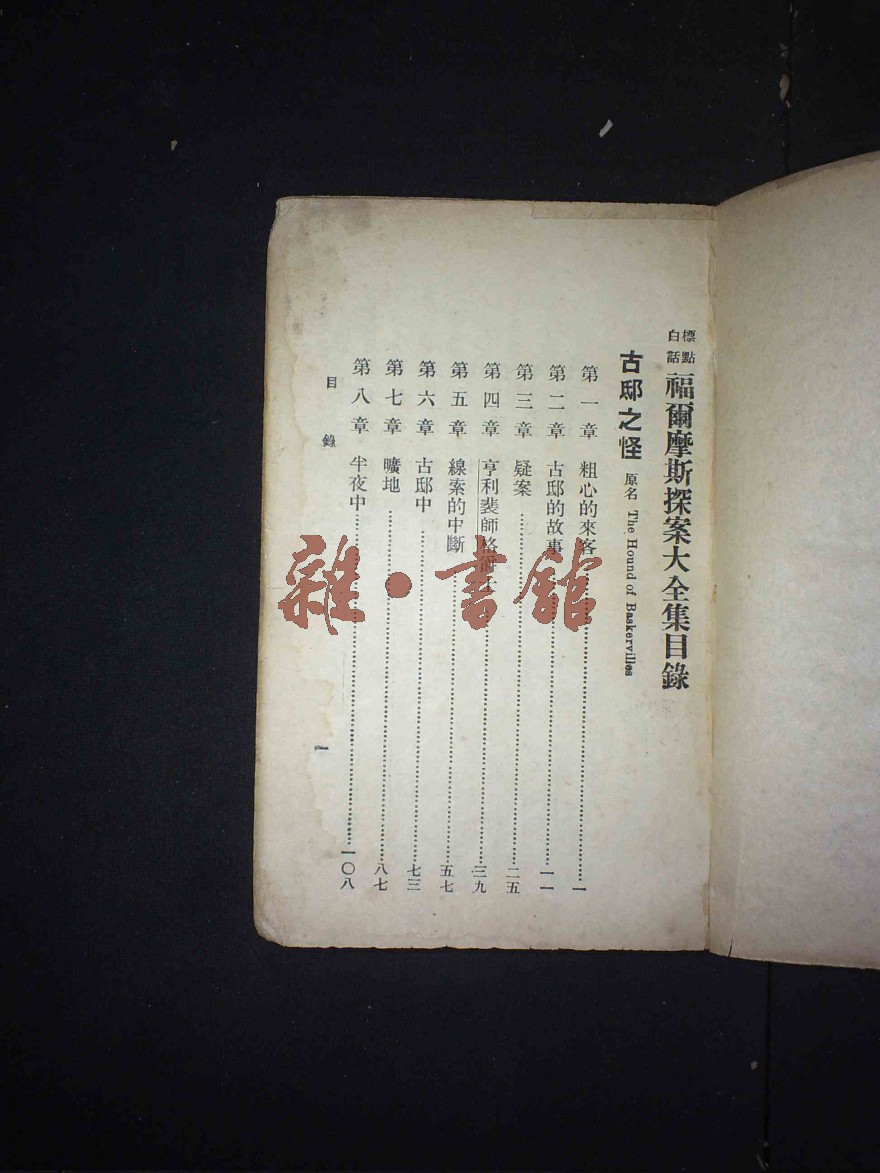 標點白話 福爾摩斯探案大全集目錄
古邸之怪 原名 The Hound of Baskervilles
第一章 粗心的來客……一
第二章 古邸的故事……一一
第三章 疑案……二五
第四章 亨利裴師格爵士……三九
第五章 線索的中斷……五七
第六章 古邸中……七三
第七章 曠地……八七
第八章 半夜中……一〇八
目錄 一
雜·書館